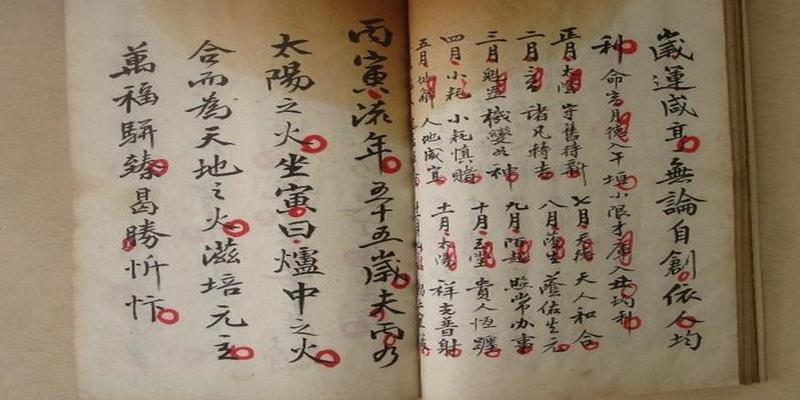 歲運咸亨無論自創依人均
利 命宮月德入午垣小限才庫入丑均利
正月太陰 守舊待新 七月天德 天人和合
二月 諸凡特吉 八月蔭生 蔭佑生元
三月魁罡 機變如神 九月陌越 照常办事
四月小耗 小耗慎賭 十月玉堂 貴人恆躔
五月 人地咸宜 十一月太陽 祥光普射
丙寅流年五十五歲未雨乃
太陽之火坐寅曰爐中之火
合而為天地之火滋培元立
萬福駢臻曷勝忻忭